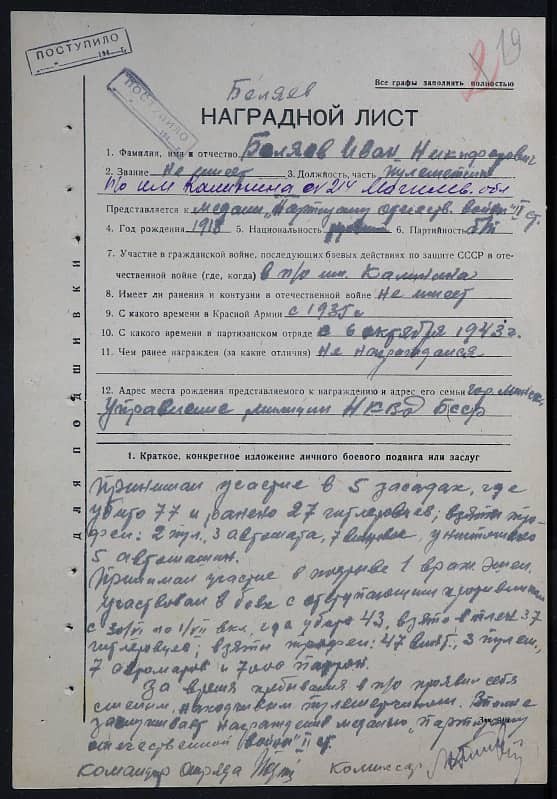 ПОСТУПИЛО
19
2
ПОСТУПИЛО
Беляев
Все графы заполнять полностью
НАГРАДНОЙ ЛИСТ
1. Фамилия, имя и отчество Беляев Иван Никифорович
2. Звание Не имеет 3. Должность, часть пулеметчик
п/о им Калинина 214 Могилев. обл
Представляется к медали "Партизану отечеств. войны" II ст.
4. Год рождения 1918 5. Национальность 6. Партийность
7. Участие в гражданской войне, последующих боевых действиях по защите СССР и оте-
чественной войне (где, когда) в п/о им. Калинина
8. Имеет ли ранения и контузии в отечественной войне не имеет
9. С какого времени в Красной Армии с 1935г
10. С какого времени в партизанском отряде с 6 октября 1943 г.
11. Чем ранее награжден (за какие отличия) Не награждался
12. Адрес места рождения представляемого к награждению и адрес его семьи гор. Минск
Управление милиции НКВД БССР
для подшивки
1. Краткое, конкретное изложение личного боевого подвига или заслуг
Принимал участие в 5 засадах, где
убито 77 и ранено 27 гитлеровцев; взяты тро-
феи: 2 пул., 3 автомата, 7 винтовок, уничтожено
5 автомашин.
Принимал участие в подрыве 1 враж. эшел.
Участвовал в боях с отступающим противником
с 30/VI по 1/VII вкл., где убито 43, взято в плен 37
гитлеровцев; взяты трофеи: 47 винт., 3 пулем.,
7 и 7000 патрон.
За время пребывания в п/о проявил себя
смелым, находчивым пулеметчиком. Вполне
заслуживает награждения медалью "Партизану
отечественной войны" II ст.
Командир отряда Комиссар